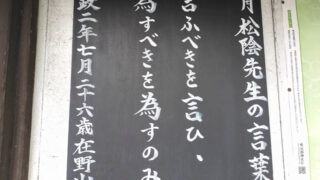 月松陰先生の言葉
言ふべきを言ひ、
為すべきを為すのみ
政二年七月二十六歳在野山